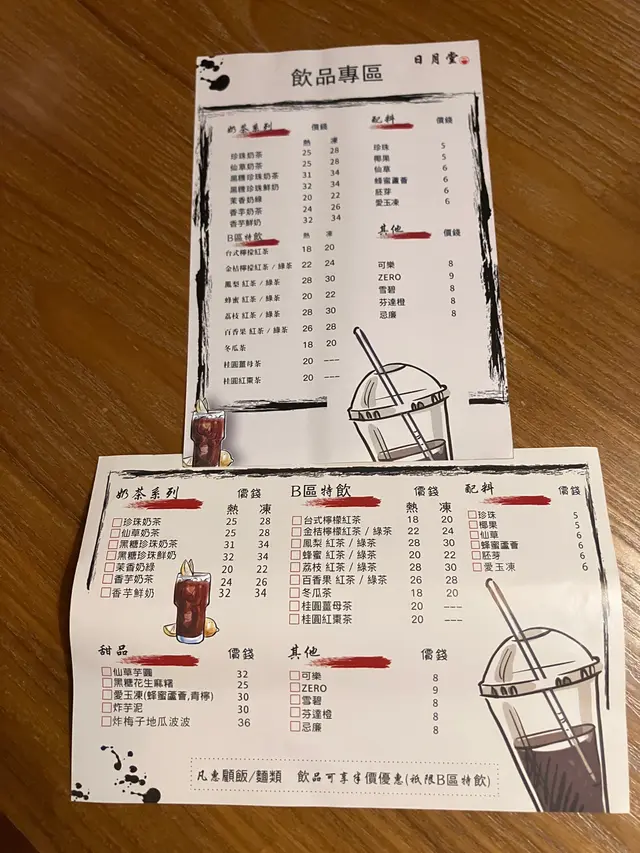 日月堂
飲品專區
奶茶系列 價錢
熱 凍
珍珠奶茶 25 28
仙草奶茶 25 28
黑糖珍珠奶茶 31 34
黑糖珍珠鮮奶 32 34
茉香奶綠 20 22
香芋奶茶 24 26
香芋鮮奶 32 34
B區特飲 熱 凍
台式檸檬紅茶 18 20
金桔檸檬紅茶 / 綠茶 22 24
鳳梨 紅茶 / 綠茶 28 30
蜂蜜 紅茶 / 綠茶 20 22
荔枝 紅茶 / 綠茶 28 30
百香果 紅茶 / 綠茶 26 28
冬瓜茶 18 20
桂圓薑母茶 20 ---
桂圓紅棗茶 20 ---
配料 價錢
珍珠 5
椰果 5
仙草 6
蜂蜜蘆薈 6
胚芽 6
愛玉凍 6
其他 價錢
可樂 8
ZERO 9
雪碧 8
芬達橙 8
忌廉 8
奶茶系列 價錢
熱 凍
珍珠奶茶 25 28
仙草奶茶 25 28
黑糖珍珠奶茶 31 34
黑糖珍珠鮮奶 32 34
茉香奶綠 20 22
香芋奶茶 24 26
香芋鮮奶 32 34
B區特飲 價錢
熱 凍
台式檸檬紅茶 18 20
金桔檸檬紅茶 / 綠茶 22 24
鳳梨 紅茶 / 綠茶 28 30
蜂蜜 紅茶 / 綠茶 20 22
荔枝 紅茶 / 綠茶 28 30
百香果 紅茶 / 綠茶 26 28
冬瓜茶 18 20
桂圓薑母茶 20 ---
桂圓紅棗茶 20 ---
配料 價錢
珍珠 5
椰果 5
仙草 6
蜂蜜蘆薈 6
胚芽 6
愛玉凍 6
甜品 價錢
仙草芋圓 32
黑糖花生麻糬 25
愛玉凍(蜂蜜蘆薈,青檸) 30
炸芋泥 30
炸梅子地瓜波波 36
其他 價錢
可樂 8
ZERO 9
雪碧 8
芬達橙 8
忌廉 8
凡惠顧飯/麵類 飲品可享半價優惠(祇限B區特飲)